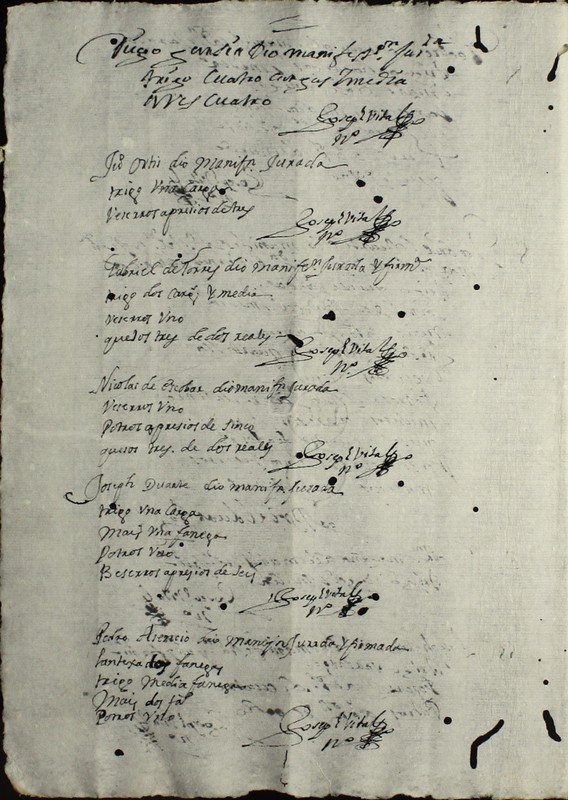 Diego garsia dio manifes.on Jur.da
trigo Cuatro cargas Y media
rres Cuatro
Joseph Vital
No.
Ju.o Ortis dio Manif.n Jurada
trigo Vna Carga
Veserros apresios de tres
Joseph Vital
No.
Gabriel de Torres dio manife.n Jurada Y firm.da
trigo dos Carg.s Y media
Veserros Vno
quesos tres de dos reales
Joseph Vital
No.
Nicolas de Escobar dio manif.n Jurada
Veserros Vno
Potros apresios de sinco
quesos tres. de dos reales
Joseph Vital
No.
Joseph Duarte dio manif.n Jurada
trigo Vna Carga
Mais Vna fanega
Potros Vno
Beserros apresios de seis
Joseph Vital
No.
Pedro Asencio dio manif.n Jurada Y firmada
lantexa dos fanegas
trigo Media fanega
Mais dos fa.s
Potros Vno
Joseph Vital
No.